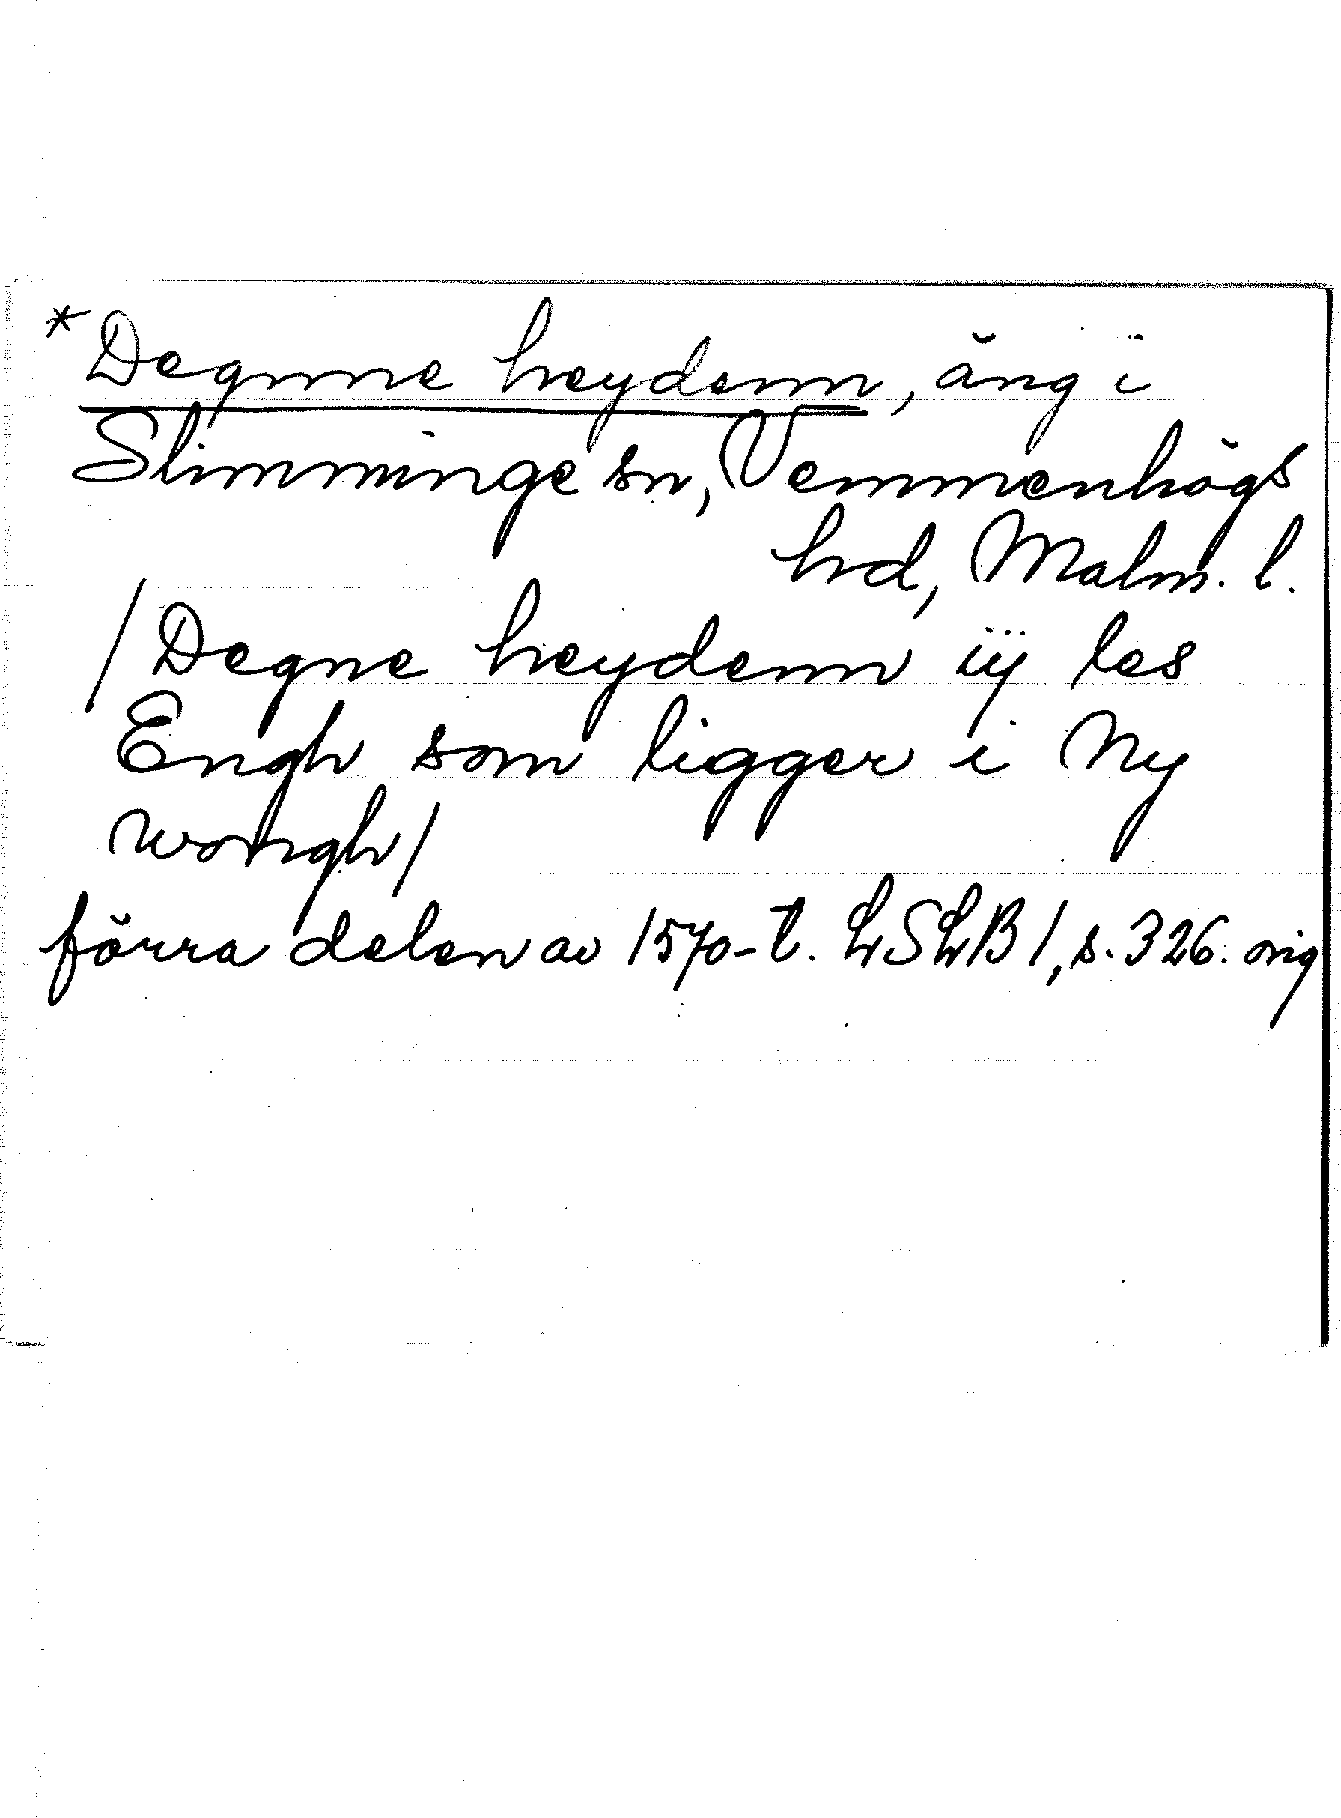 *Degnne heydenn, äng i
Slimminge sn, Vemmenhögs
hd, Malm. l.
/Degne heydenn iij les
Engh som ligger i Ny
wongh/
förra delen av 1570-t. LSLB 1, s. 326. orig